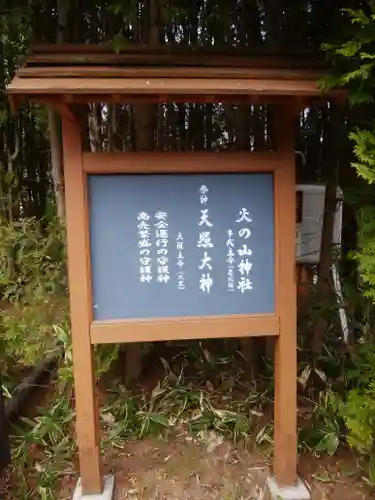 火の山神社
祭神
天照大神
安全運行の守護神
商売繁盛の守護神